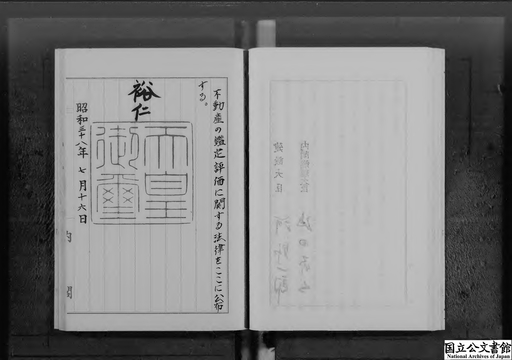 不動産の鑑定評価に関する法律をここに公布
する。
裕仁
天皇御璽
昭和三十八年七月十六日
内閣
国立公文書館
National Archives of Japan